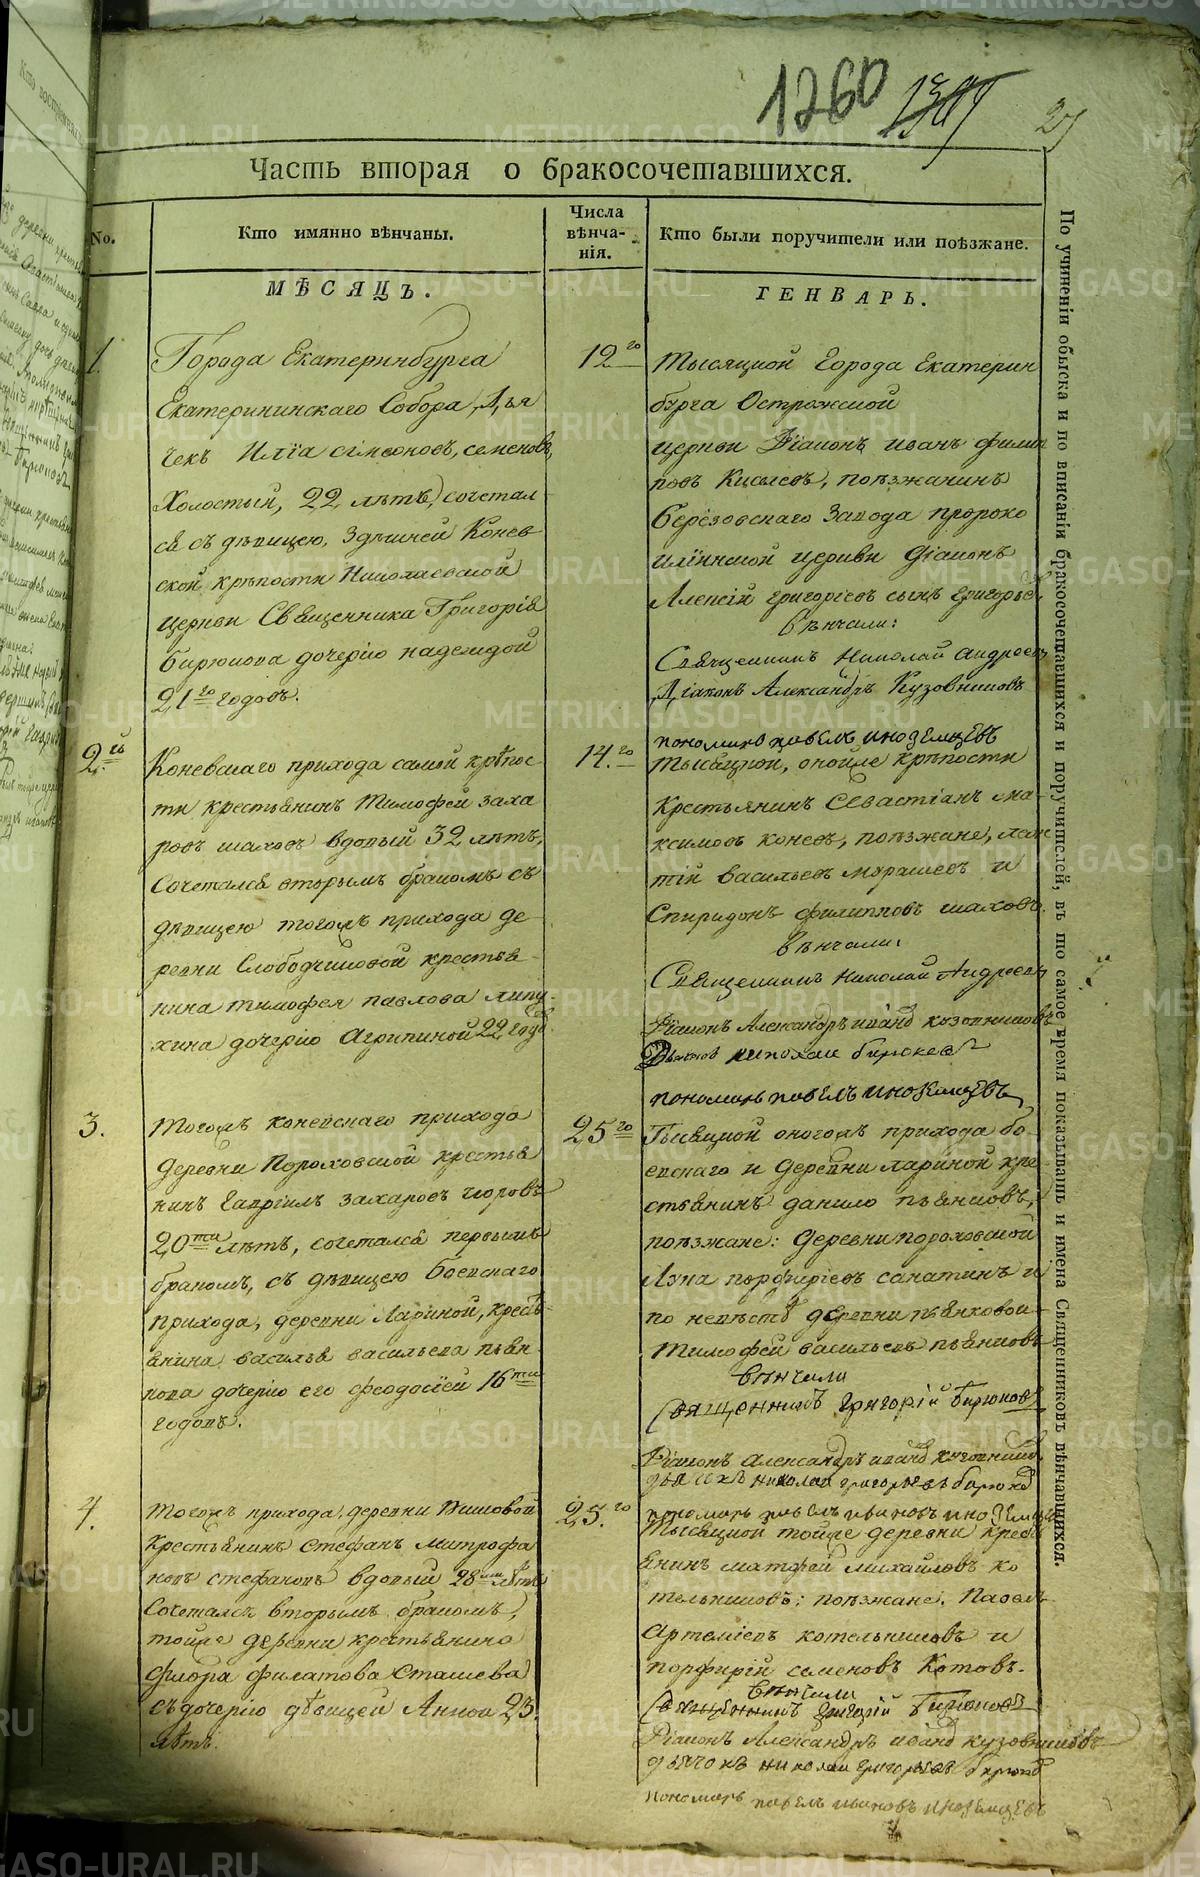 1260
Часть вторая о бракосочетавшихся.
No.
Кто имянно вѣнчаны.
Числа вѣнча-нія.
Кто были поручители или поѣзжане.
МѢСЯЦЪ.
ГЕНВАРЬ.
1.
Города Екатеринбурга
Екатерининскаго Собора Дья
чекъ Иліа сімеоновъ, семеновъ,
Холостый, 22 лѣтъ, сочетал-
ся съ дѣвицею, Здѣшней Конев
ской крѣпости Николаевской
церкви Священника Григорія
Бирюкова дочерію надеждой
21го годовъ.
12го
Тысяцкой Города Екатерин
бурга Острожской
церкви Діаконъ иванъ филип
повъ Киселевъ, поѣзжанинъ
Берёзовскаго Завода пророко
илїинской церкви діаконъ
Алексій григоріевъ сынъ григорьев
вѣнчали:
Священникъ Николай андреевъ
Діаконъ Александръ Кузовниковъ
пономарь павелъ иноземцевъ
2й
Коневскаго прихода самой крѣпос-
ти крестьянинъ Тимофей заха
ровъ шаховъ вдовый 32 лѣтъ,
Сочетался вторымъ бракомъ съ
дѣвицею тогожъ прихода де-
ревни Слободчиковой крестья
нина тимофея павлова липу-
хина дочерію Агрипиной 22 годов
14.го
тысяцкой, онойже крѣпости
Крестьянинъ Севастіанъ ма-
ксимовъ коневъ, поѣзжане,
тій васильевъ мурашевъ и
Спиридонъ филипповъ шаховъ.
вѣнчали:
Священникъ Николай Андреевъ
Діаконъ Александръ ивановъ кузовниковъ
Дьячокъ николаи бирюков
пономарь павелъ иноземцевъ
3.
Тогожъ коневскаго прихода
Деревни Пороховской крестья
нинъ гавріилъ захаровъ
20ти лѣтъ, сочетался первымъ
бракомъ, съ дѣвицею Боевскаго
прихода, деревни Лариной, кресть
янина василья васильева пьян
кова дочерію его феодосіей 16ти
годовъ.
25го
Тысяцкой оногожъ прихода бо-
евскаго и деревни лариной кре-
стьянинъ данило пьянковъ,
поѣзжане: деревни пороховской
Лука порфиріевъ санатинъ и
по невѣстѣ деревни пьянковой
Тимофей васильевъ пьянковъ
вѣнчали
Священникъ григорій Бирюков
Діаконъ Александръ ивановъ кузовников
дьячекъ николаи григорьевъ бирюков
пономарь павелъ ивановъ иноземцев
4.
Тогожъ прихода, деревни
Крестьянинъ стефанъ митрофа
новъ стефановъ вдовый 28ми лѣтъ
Сочетался вторымъ бракомъ,
тойже деревни крестьянина
флора филатова Сташева
съ дочерію дѣвицей Анной 23.
лѣтъ.
25.го
Тысяцкой тойже деревни кресть
янинъ матфей михайловъ ко
тельниковъ: поѣзжане: Павелъ
Артеміевъ котельниковъ и
порфирій семеновъ Котовъ.
вѣнчали
Священникъ григорій Бирюков
Діаконъ Александръ ивановъ кузовниковъ
дьячокъ николаи григорьевъ бирюков
пономарь павелъ ивановъ иноземцевъ
По учиненіи обыска и по вписаніи бракосочетавшихся и поручителей, въ то самое время показывать и имена Священниковъ вѣнчавшихся.
METRIKI.GASO-URAL.RU